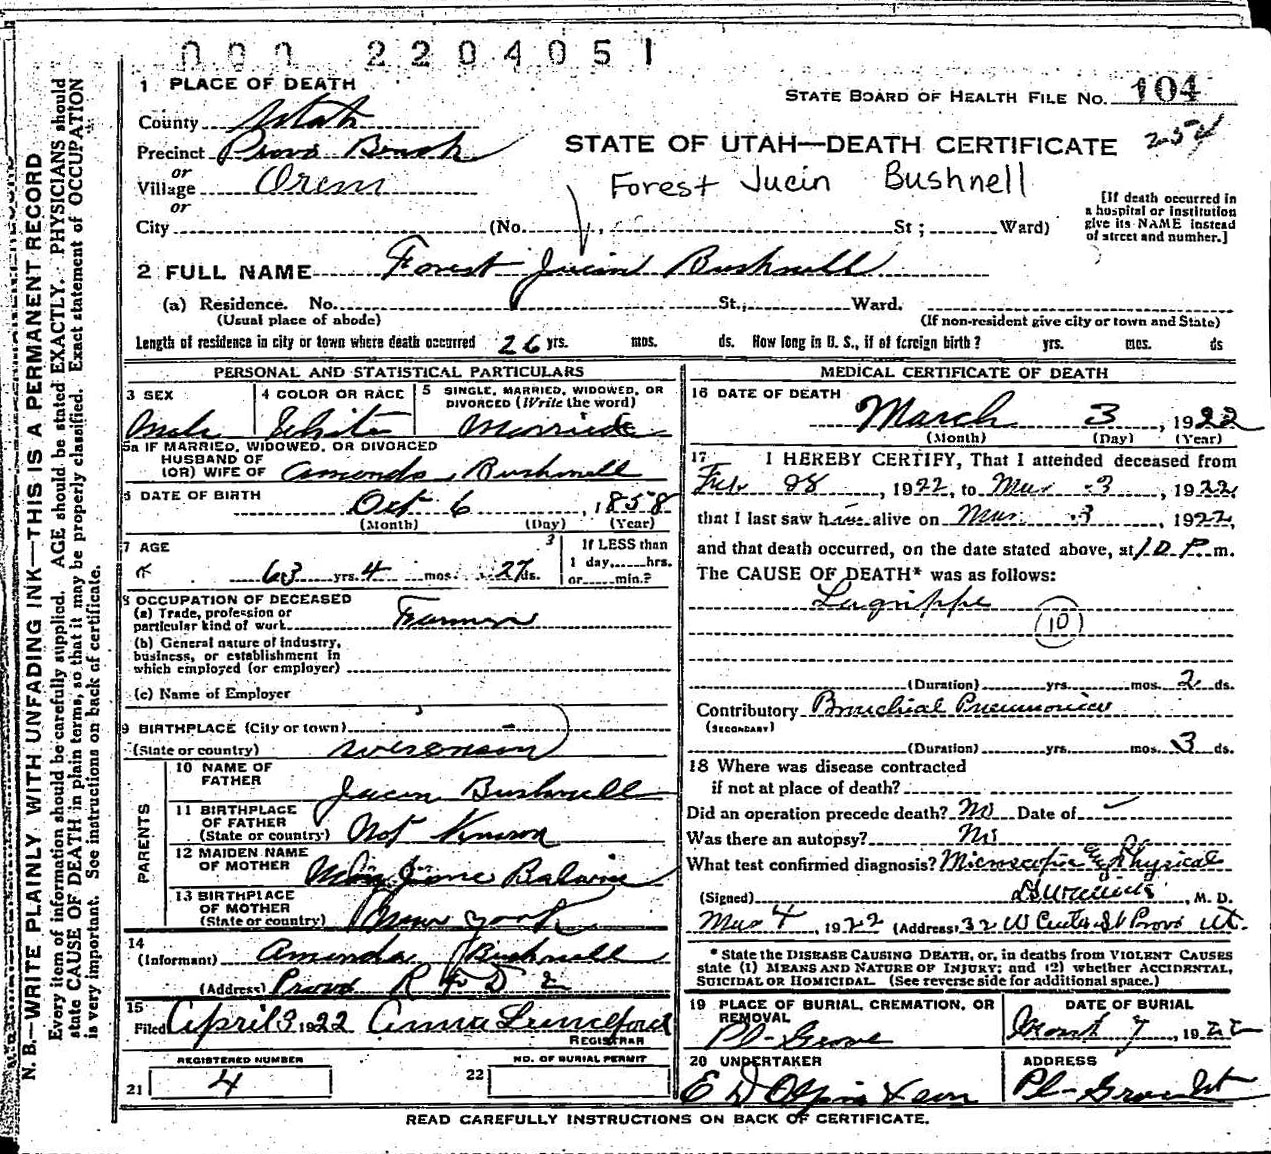 000 2204051
1 PLACE OF DEATH
STATE BOARD OF HEALTH FILE No. 104
County Utah
254
Precinct Provo Bench
STATE OF UTAH—DEATH CERTIFICATE
or
Village Orem
Forest Jucin Bushnell
or
[If death occurred in a hospital or institution give its NAME instead of street and number.]
City (No. St; Ward)
2 FULL NAME Forest Jucin Bushnell
(a) Residence. No. St; Ward.
(Usual place of abode) (If non-resident give city or town and State)
Length of residence in city or town where death occurred 26 yrs. mos. ds. How long in U. S., if of foreign birth? yrs. mos. ds
PERSONAL AND STATISTICAL PARTICULARS
3 SEX 4 COLOR OR RACE 5 SINGLE, MARRIED, WIDOWED, OR DIVORCED (Write the word)
Male White Married
5a IF MARRIED, WIDOWED, OR DIVORCED
HUSBAND OF
(OR) WIFE OF Amanda Bushnell
6 DATE OF BIRTH Oct 6, 1858
(Month) (Day) (Year)
7 AGE 63 yrs. 4 mos. 27 ds.
If LESS than 1 day, hrs. or min.?
8 OCCUPATION OF DECEASED
(a) Trade, profession or particular kind of work Farmer
(b) General nature of industry, business, or establishment in which employed (or employer)
(c) Name of Employer
9 BIRTHPLACE (City or town)
(State or country) Wisconsin
PARENTS
10 NAME OF FATHER Jucin Bushnell
11 BIRTHPLACE OF FATHER (State or country) Not Known
12 MAIDEN NAME OF MOTHER Jane Balwin
13 BIRTHPLACE OF MOTHER (State or country) York
14
(Informant) Amanda Bushnell
(Address) Provo R F D 2
15
Filed April 3, 1922 Anna Lunceford
REGISTRAR
REGISTERED NUMBER NO. OF BURIAL PERMIT
21 4 22
MEDICAL CERTIFICATE OF DEATH
16 DATE OF DEATH
March 3, 1922
(Month) (Day) (Year)
17 I HEREBY CERTIFY, That I attended deceased from
Feb. 28, 1922, to Mar 3, 1922,
that I last saw him alive on Mar. 3, 1922,
and that death occurred, on the date stated above, at 10 P. m.
The CAUSE OF DEATH* was as follows:
Lagrippe
10
(Duration) yrs. mos. 2 ds.
Contributory Bronchial Pneumonia
(SECONDARY)
(Duration) yrs. mos. 3 ds.
18 Where was disease contracted
if not at place of death?
Did an operation precede death? No Date of
Was there an autopsy? No
What test confirmed diagnosis? Microscopic & Physical
(Signed) , M. D.
Mar 4, 1922 (Address) 32 W Center St Provo Ut.
* State the DISEASE CAUSING DEATH, or, in deaths from VIOLENT CAUSES
state (1) MEANS AND NATURE OF INJURY; and (2) whether ACCIDENTAL,
SUICIDAL OR HOMICIDAL. (See reverse side for additional space.)
19 PLACE OF BURIAL, CREMATION, OR REMOVAL DATE OF BURIAL
Pl- Grove March 7, 1922
20 UNDERTAKER ADDRESS
E D Olpin & Son Pl- Grove Ut
READ CAREFULLY INSTRUCTIONS ON BACK OF CERTIFICATE.
N. B.—WRITE PLAINLY WITH UNFADING INK—THIS IS A PERMANENT RECORD
Every item of information should be carefully supplied. AGE should be stated EXACTLY. PHYSICIANS should
state CAUSE OF DEATH in plain terms, so that it may be properly classified. Exact statement of OCCUPATION
is very important. See instructions on back of certificate.